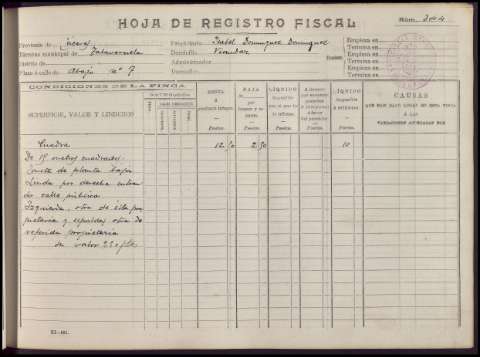 HOJA DE REGISTRO FISCAL
Núm. 344
Provincia de Cáceres
Término municipal de Talaveruela
Distrito de
Plaza ó calle de Abajo nº 7
Propietario Isabel Dominguez Dominguez
Domicilio Viandar
Administrador
Domicilio
Empieza en
Termina en
Empieza en
Termina en
Empieza en
Termina en
CONDICIONES DE LA FINCA
SUPERFICIE, VALOR Y LINDEROS
RENTA
Pesetas.
BAJA
Pesetas.
LÍQUIDO
Pesetas.
Pesetas.
LÍQUIDO
Pesetas.
CAUSAS
QUE HAN DADO LUGAR EN ESTA FINCA
Á LAS
VARIACIONES ACORDADAS POR
Cuadra 12 50 2 50 10
De 15 metros cuadrados.
Consta de planta baja
Linda por derecha entran
do calle pública
Izquierda, otra de esta pro
pietaria y espalda otra de
referida propietaria
su valor 250 ptas